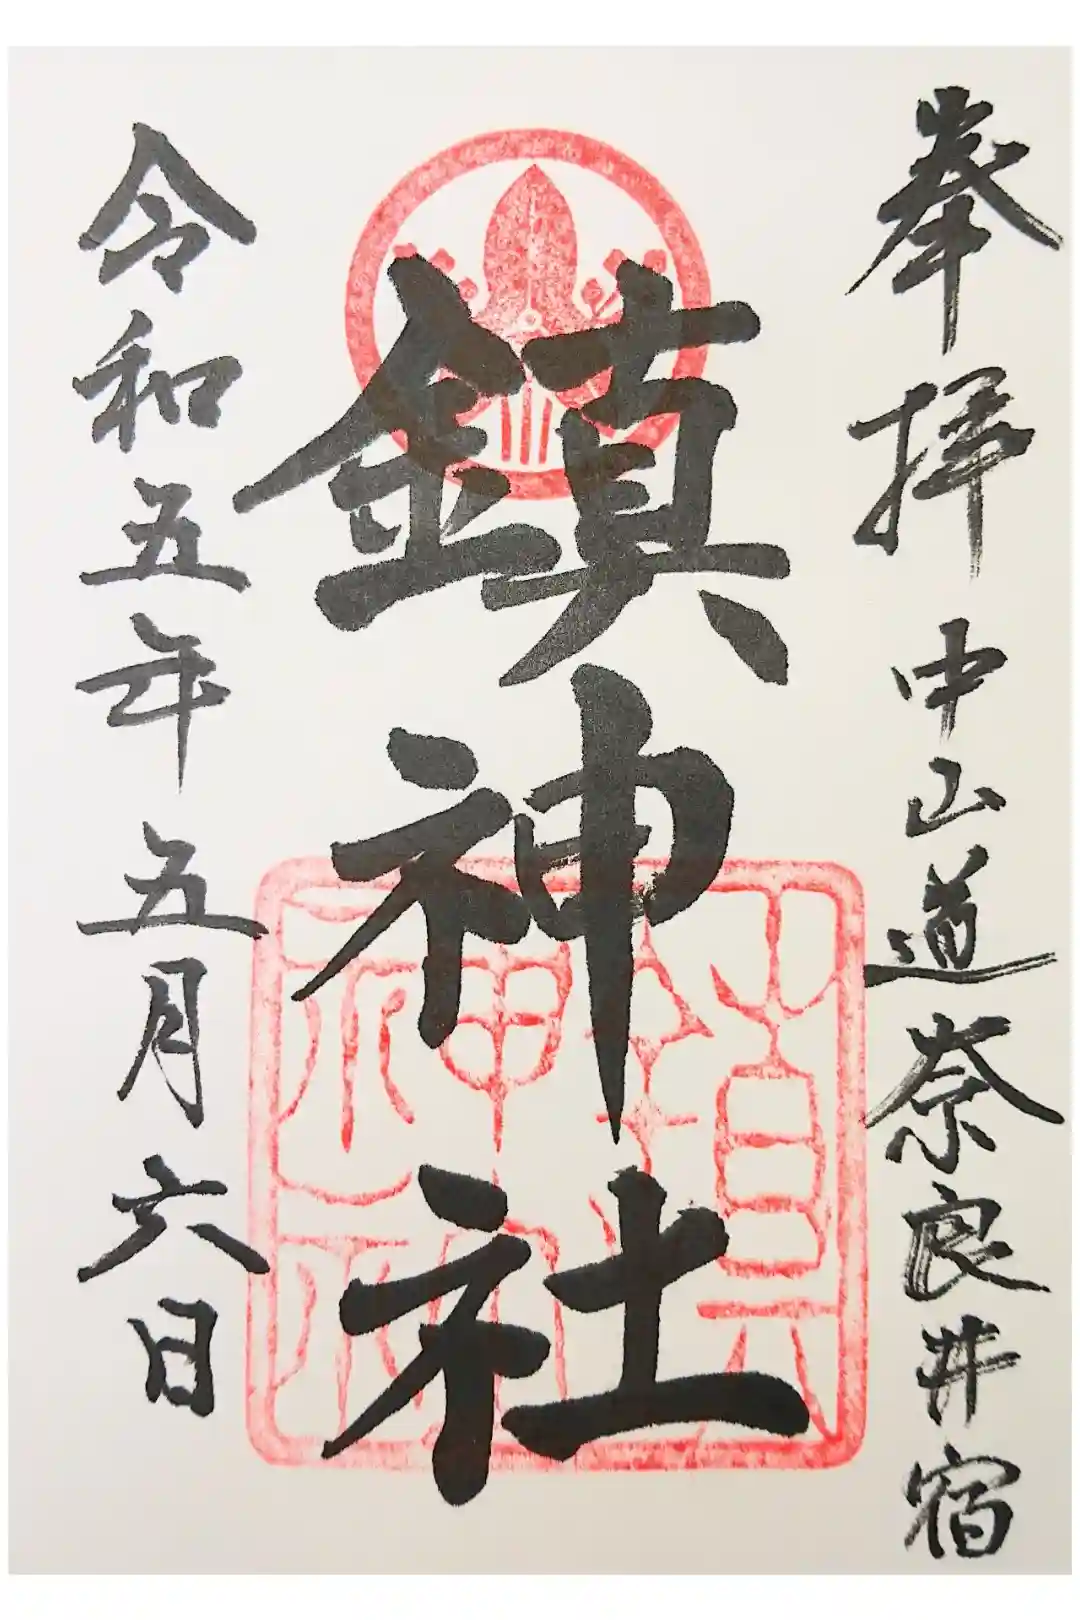 奉拝 中山道奈良井宿
鎮神社
令和五年五月六日